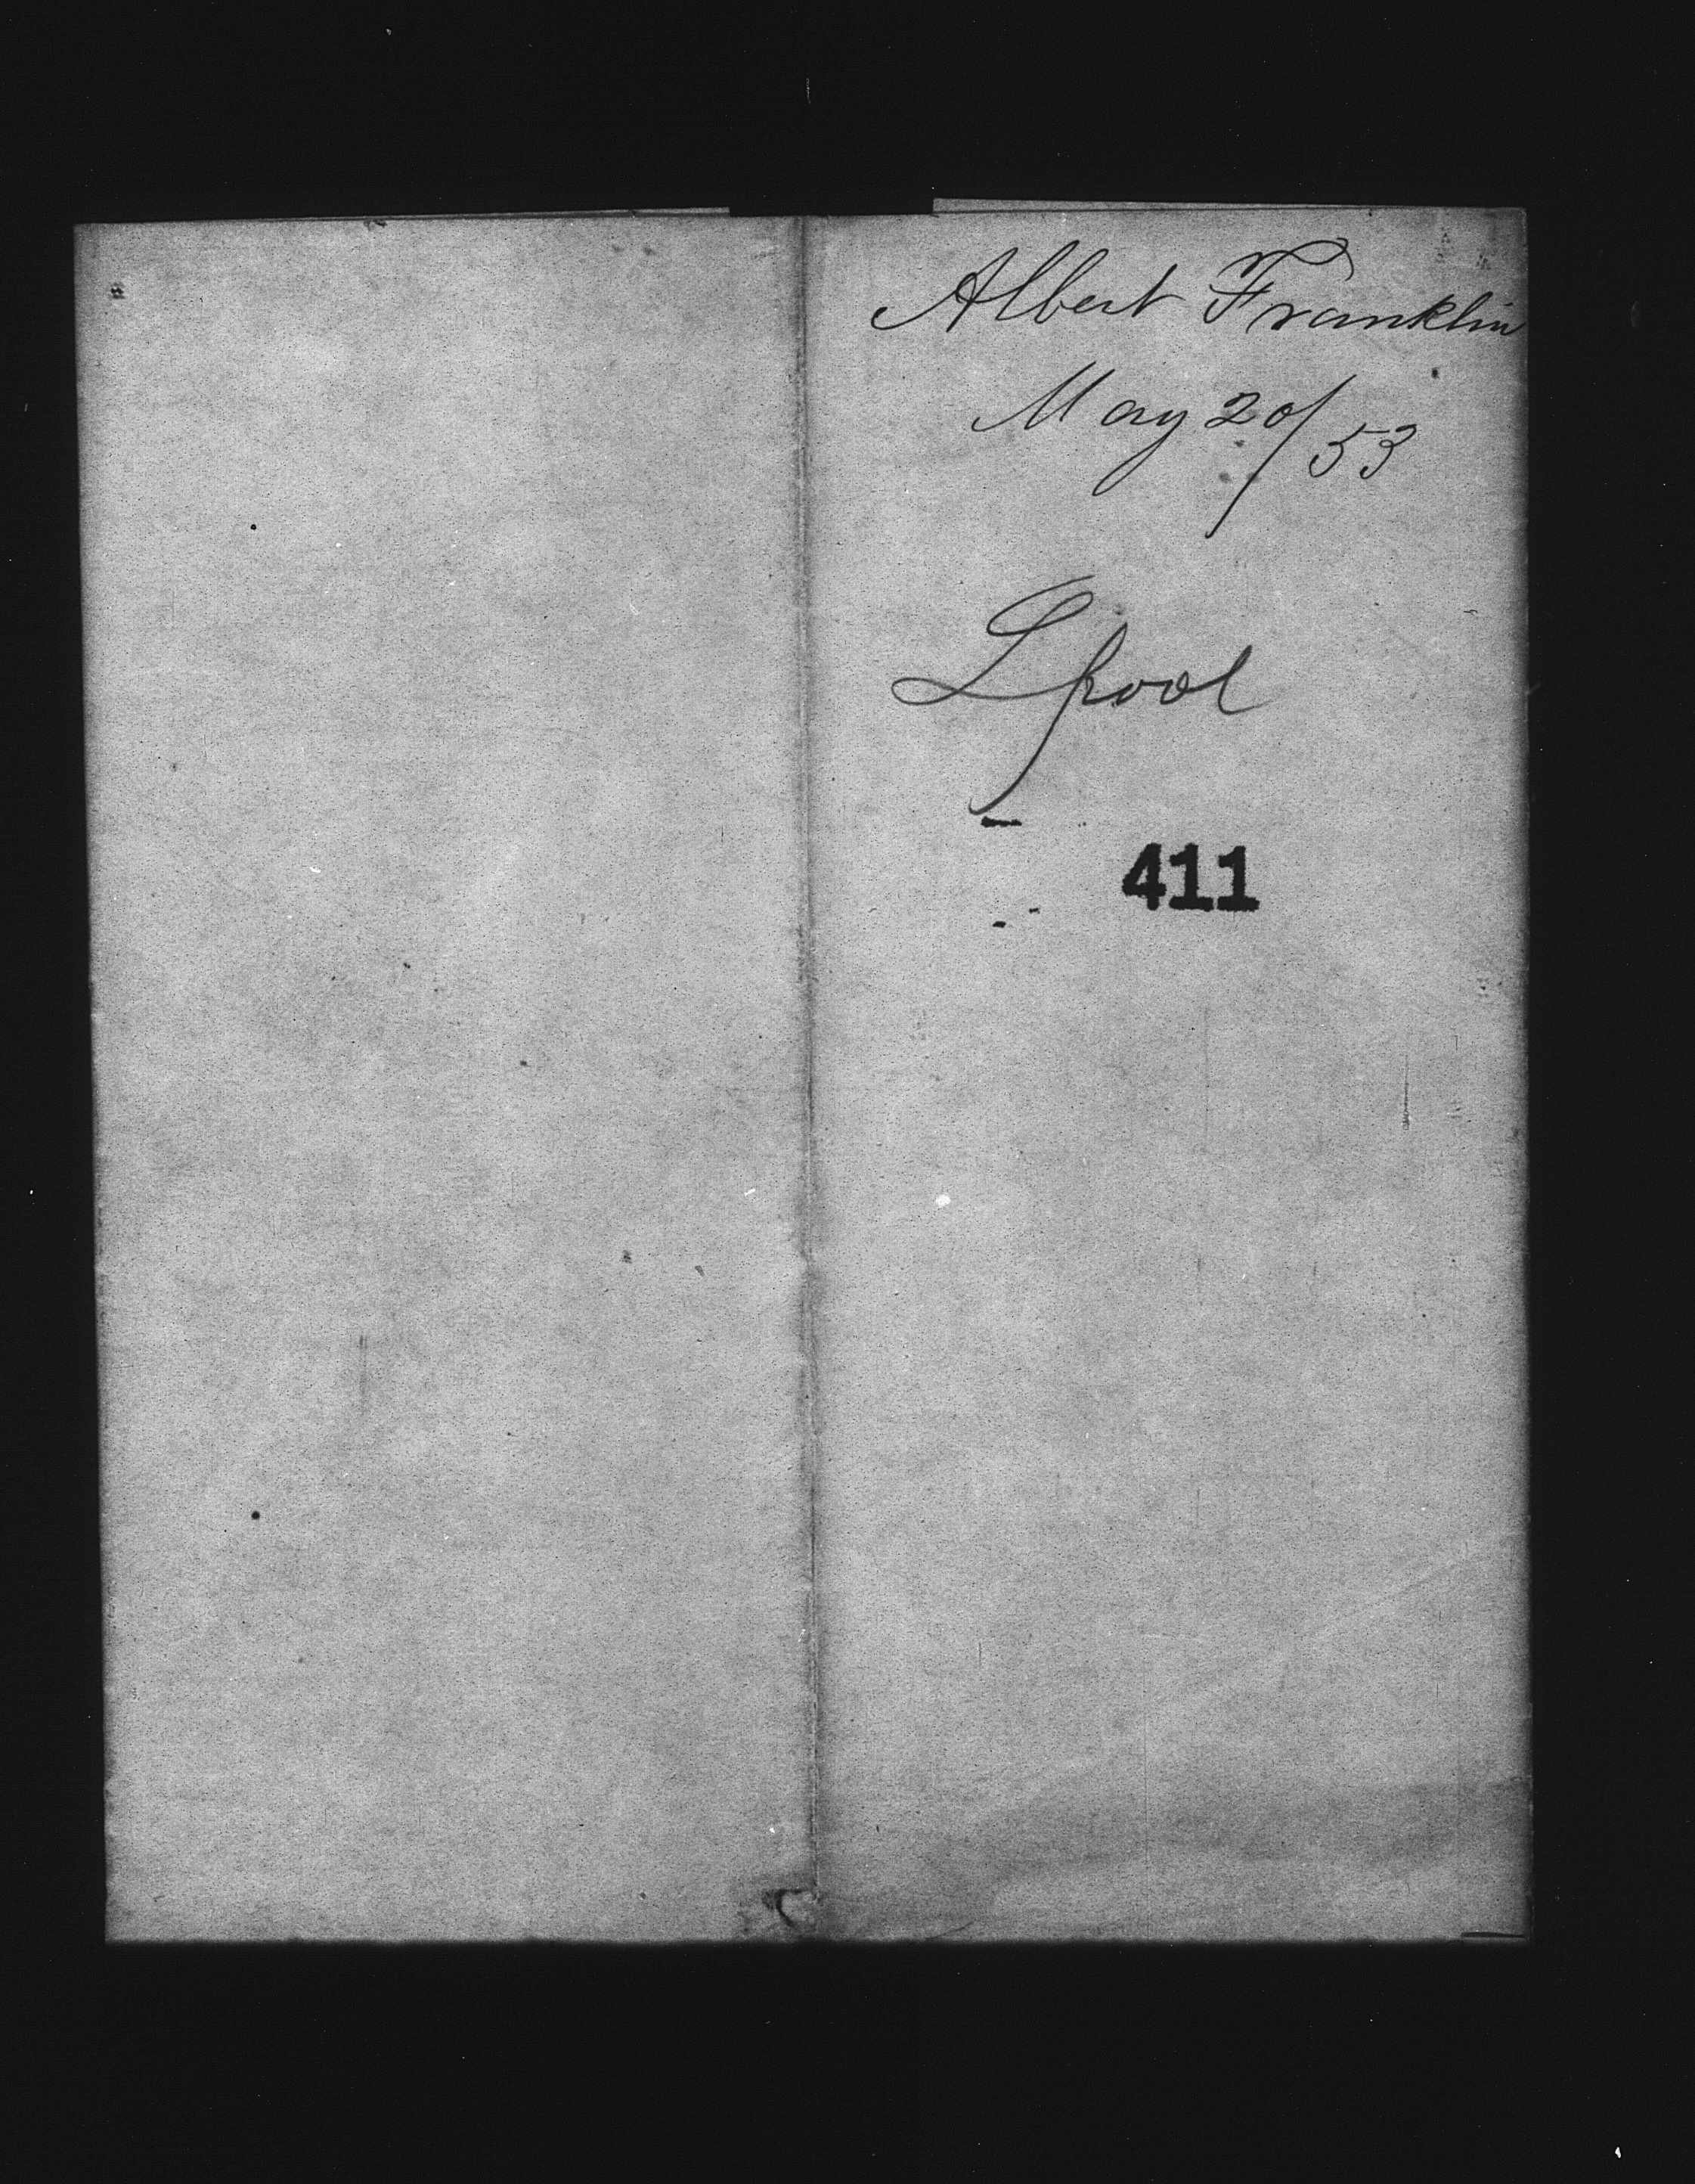 Albert Franklin
May 20/53
Lpool
411